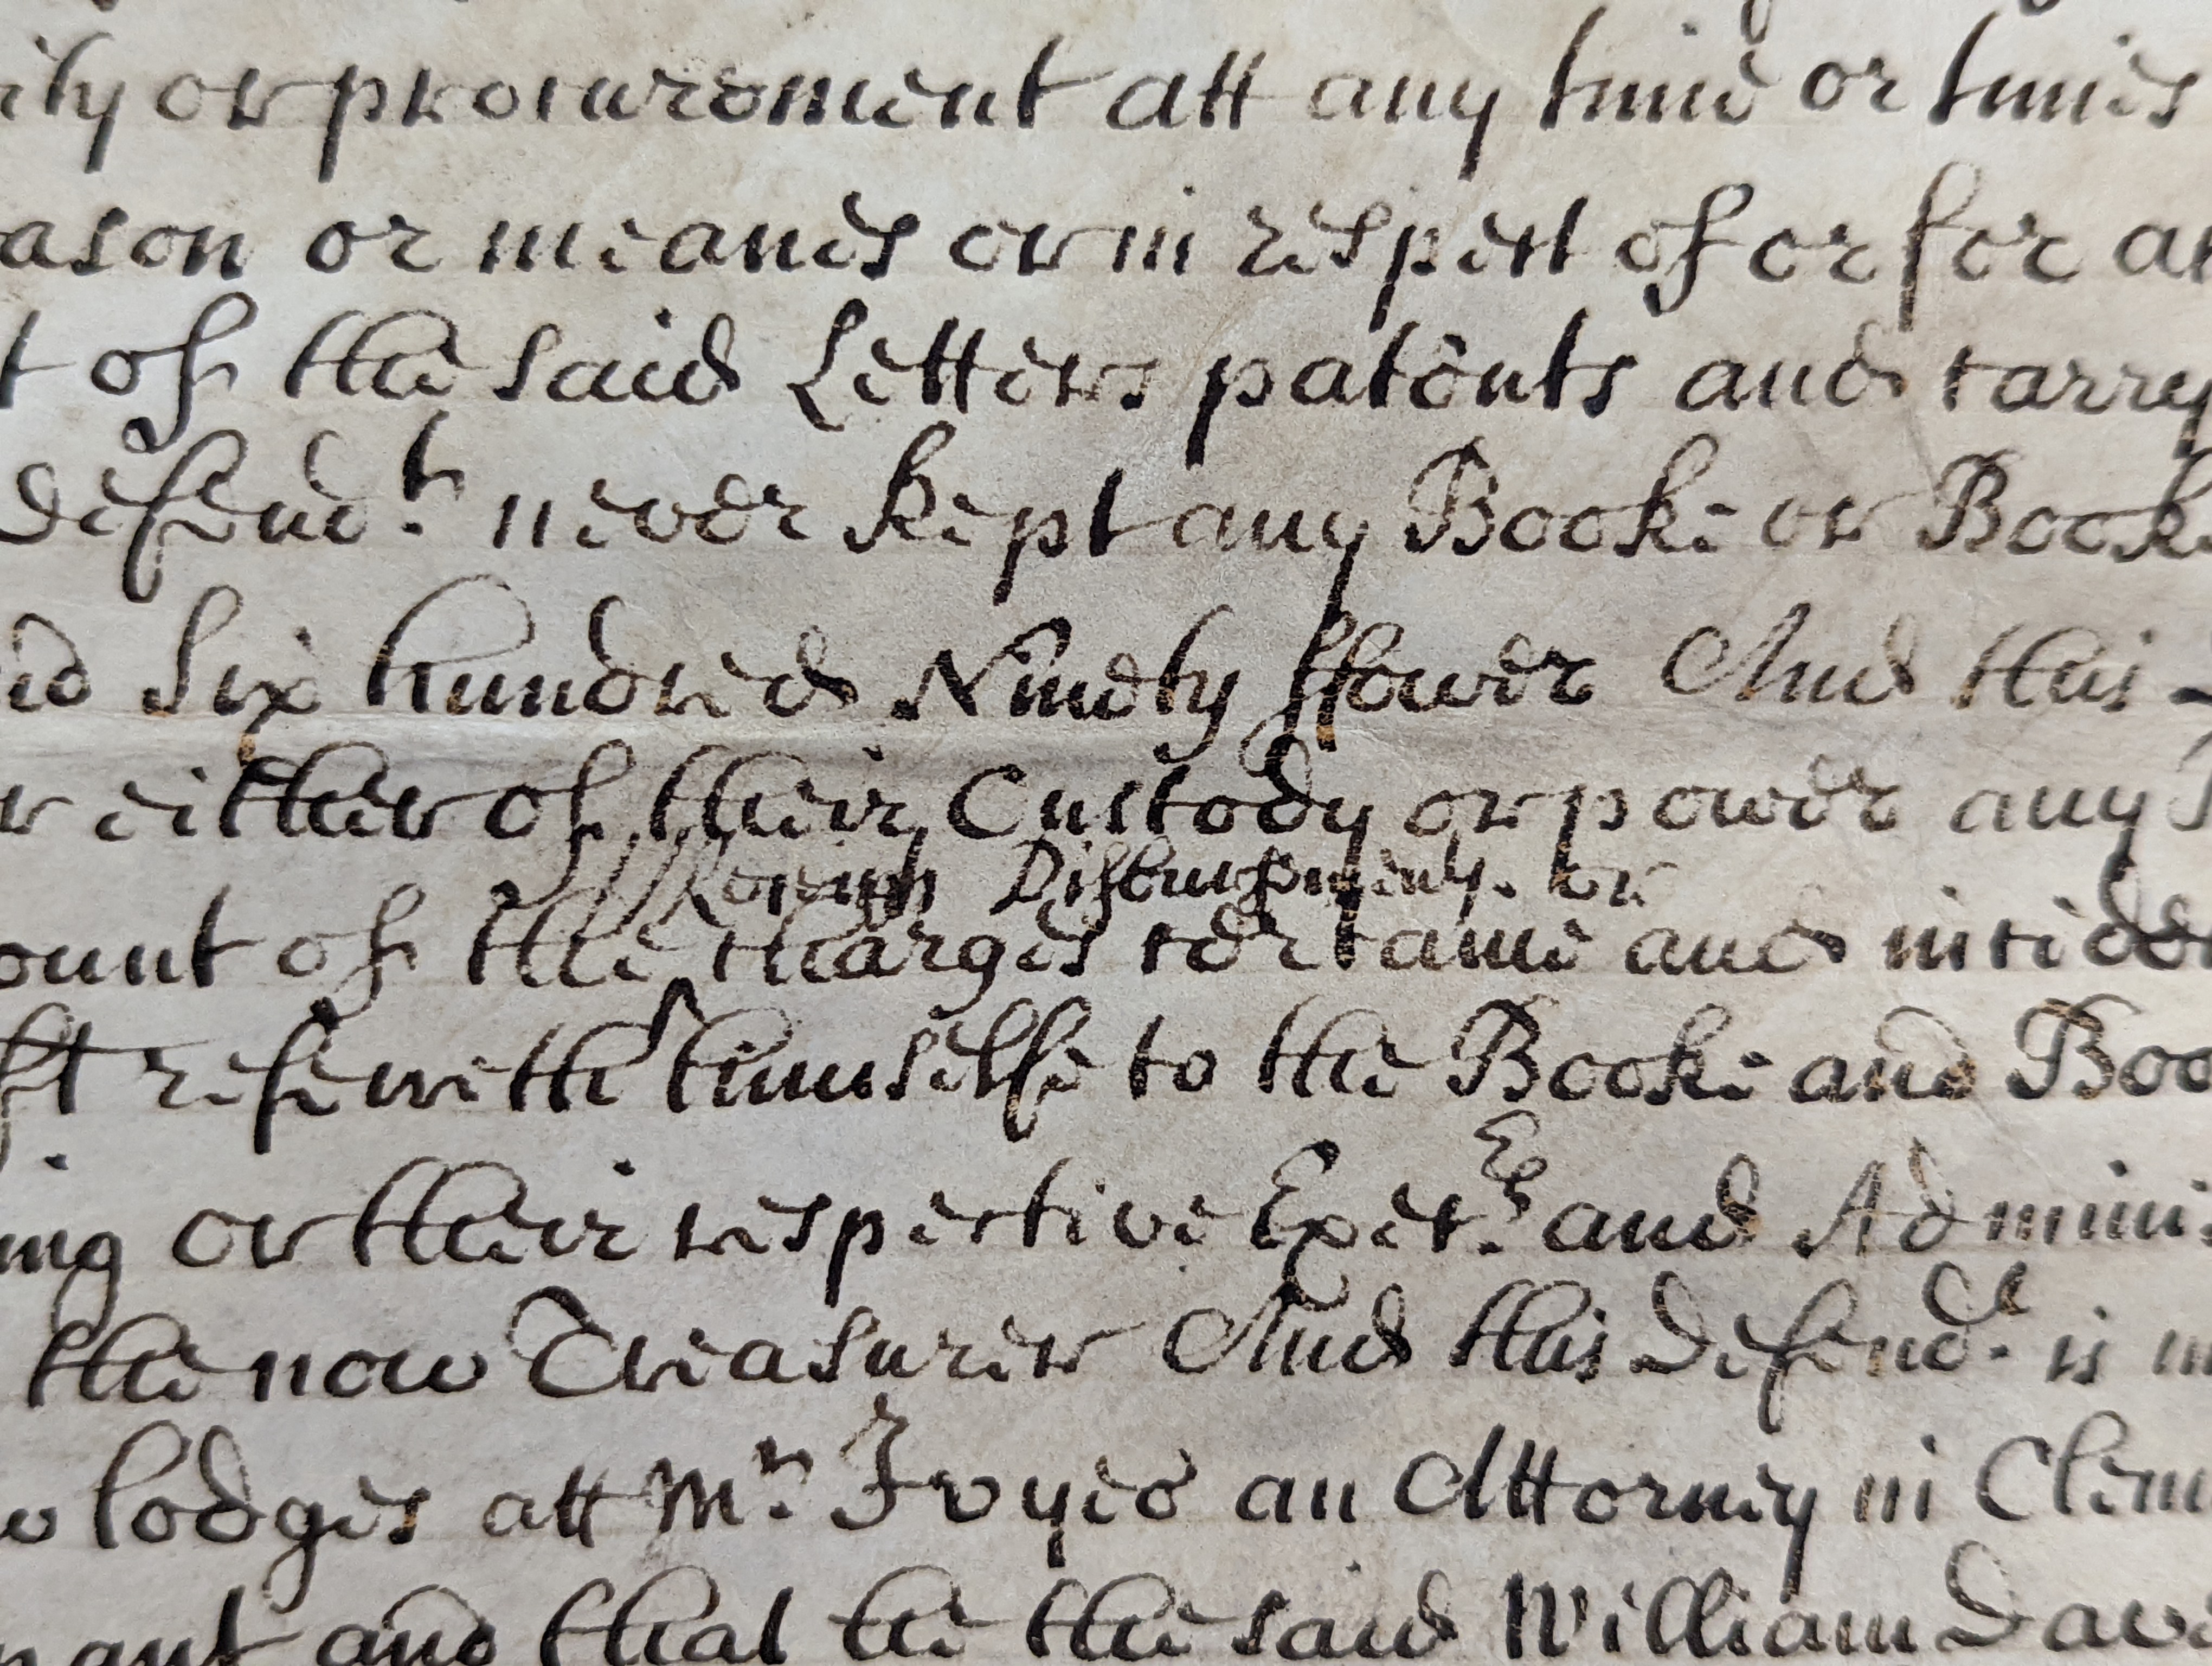 ity or procurement att any time or times
ason or meanes or in respect of or for an
t of the said Letters patents and carry
Defend.t never kept any Booke or Book
ed Six hundred Ninety ffower And this
r either of their Custody or power any
Receipts Disbursements or
ount of the charges certaine and incident
ft referr himselfe to the Booke and Boo
ing or their respective Exec.rs and Adminis
the now Treasurer And this Defend.t is in
lodges att Mr. Joyes an Attorney in Clem
and that he the said William Dav